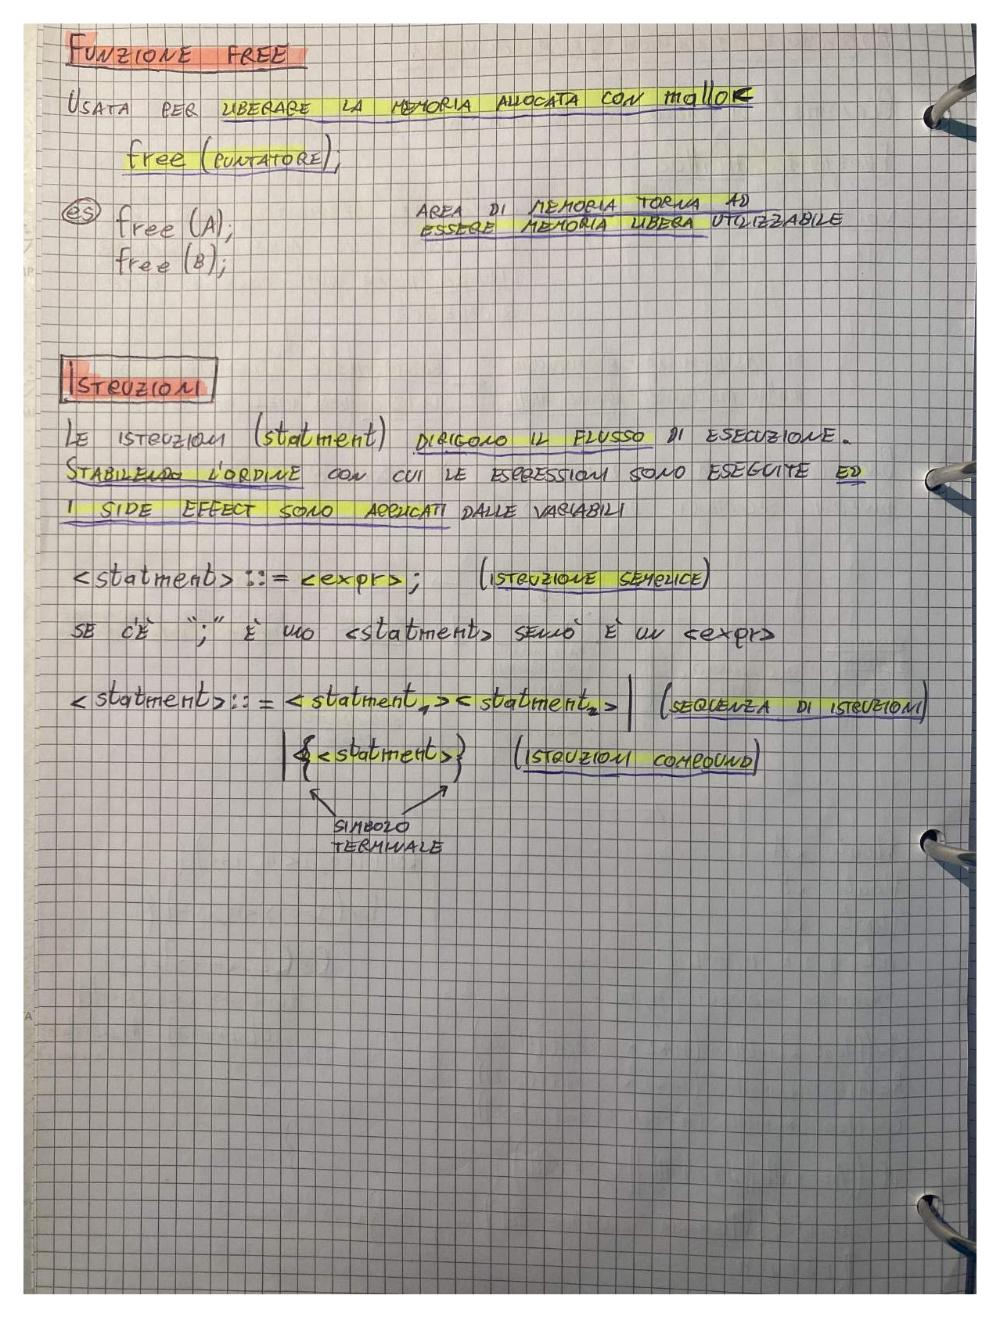 FUNZIONE FREE
USATA PER LIBERARE LA MEMORIA ALLOCATA CON malloc
free (PUNTATORE);
es free (A);
free (B);
AREA DI MEMORIA TORNA AD
ESSERE MEMORIA LIBERA UTILIZZABILE
ISTRUZIONI
LE ISTRUZIONI (statment) DIRIGONO IL FLUSSO DI ESECUZIONE.
STABILENDO L'ORDINE CON CUI LE ESPRESSIONI SONO ESEGUITE ED
I SIDE EFFECT SONO APPLICATI DALLE VARIABILI
<statment> ::= <expr>; (ISTRUZIONE SEMPLICE)
SE C'È ";" È UNO <statment> SENNÒ È UN <expr>
<statment>::= <statment₁><statment₂>| (SEQUENZA DI ISTRUZIONI)
|{<statment>} (ISTRUZIONI COMPOUND)
SIMBOLO
TERMINALE